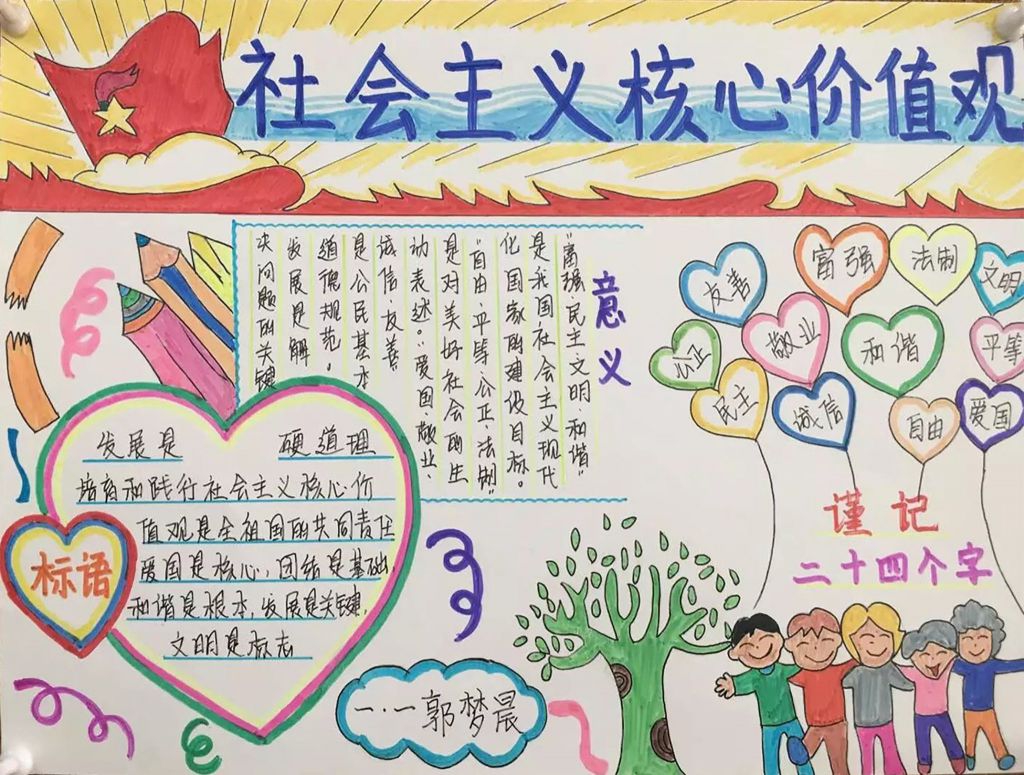 社会主义核心价值观
意义
"富强·民主·文明·和谐"
是我国社会主义现代
化国家的建设目标。
"自由·平等·公正·法制"
是对美好社会的生
动表述。"爱国·敬业·
诚信·友善"
是公民基本
道德规范。
发展是解
决问题的关键
友善
富强
法制
文明
公正
敬业
和谐
平等
民主
诚信
自由
爱国
谨记
二十四个字
标语
发展是 硬道理
培育和践行社会主义核心价
值观是全祖国的共同责任
爱国是核心,团结是基础,
和谐是根本,发展是关键,
文明是标志
一·一郭梦晨